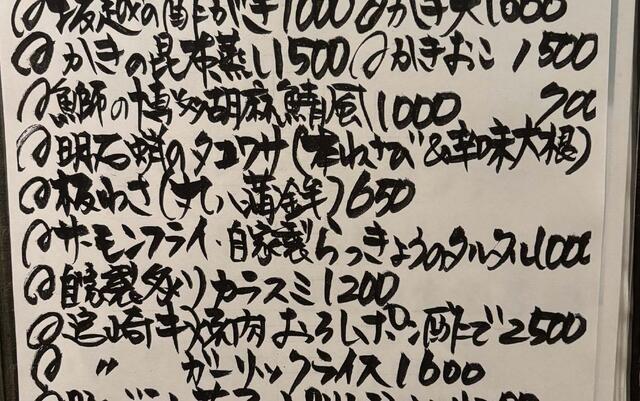 坂越の酢がき1000 かき天1000
かきの昆布蒸し1500 かきおこ1500
魚師の博多胡麻鯖風1000 900
明石蛸のタコワサ(本わさび&辛味大根)
板わさ(丸八蒲鉾)650
サーモンフライ・自家製らっきょうのタルタル1100
自家製炙りカラスミ1200
宮崎牛焼肉おろしポン酢で2500
〃 ガーリックライス1600